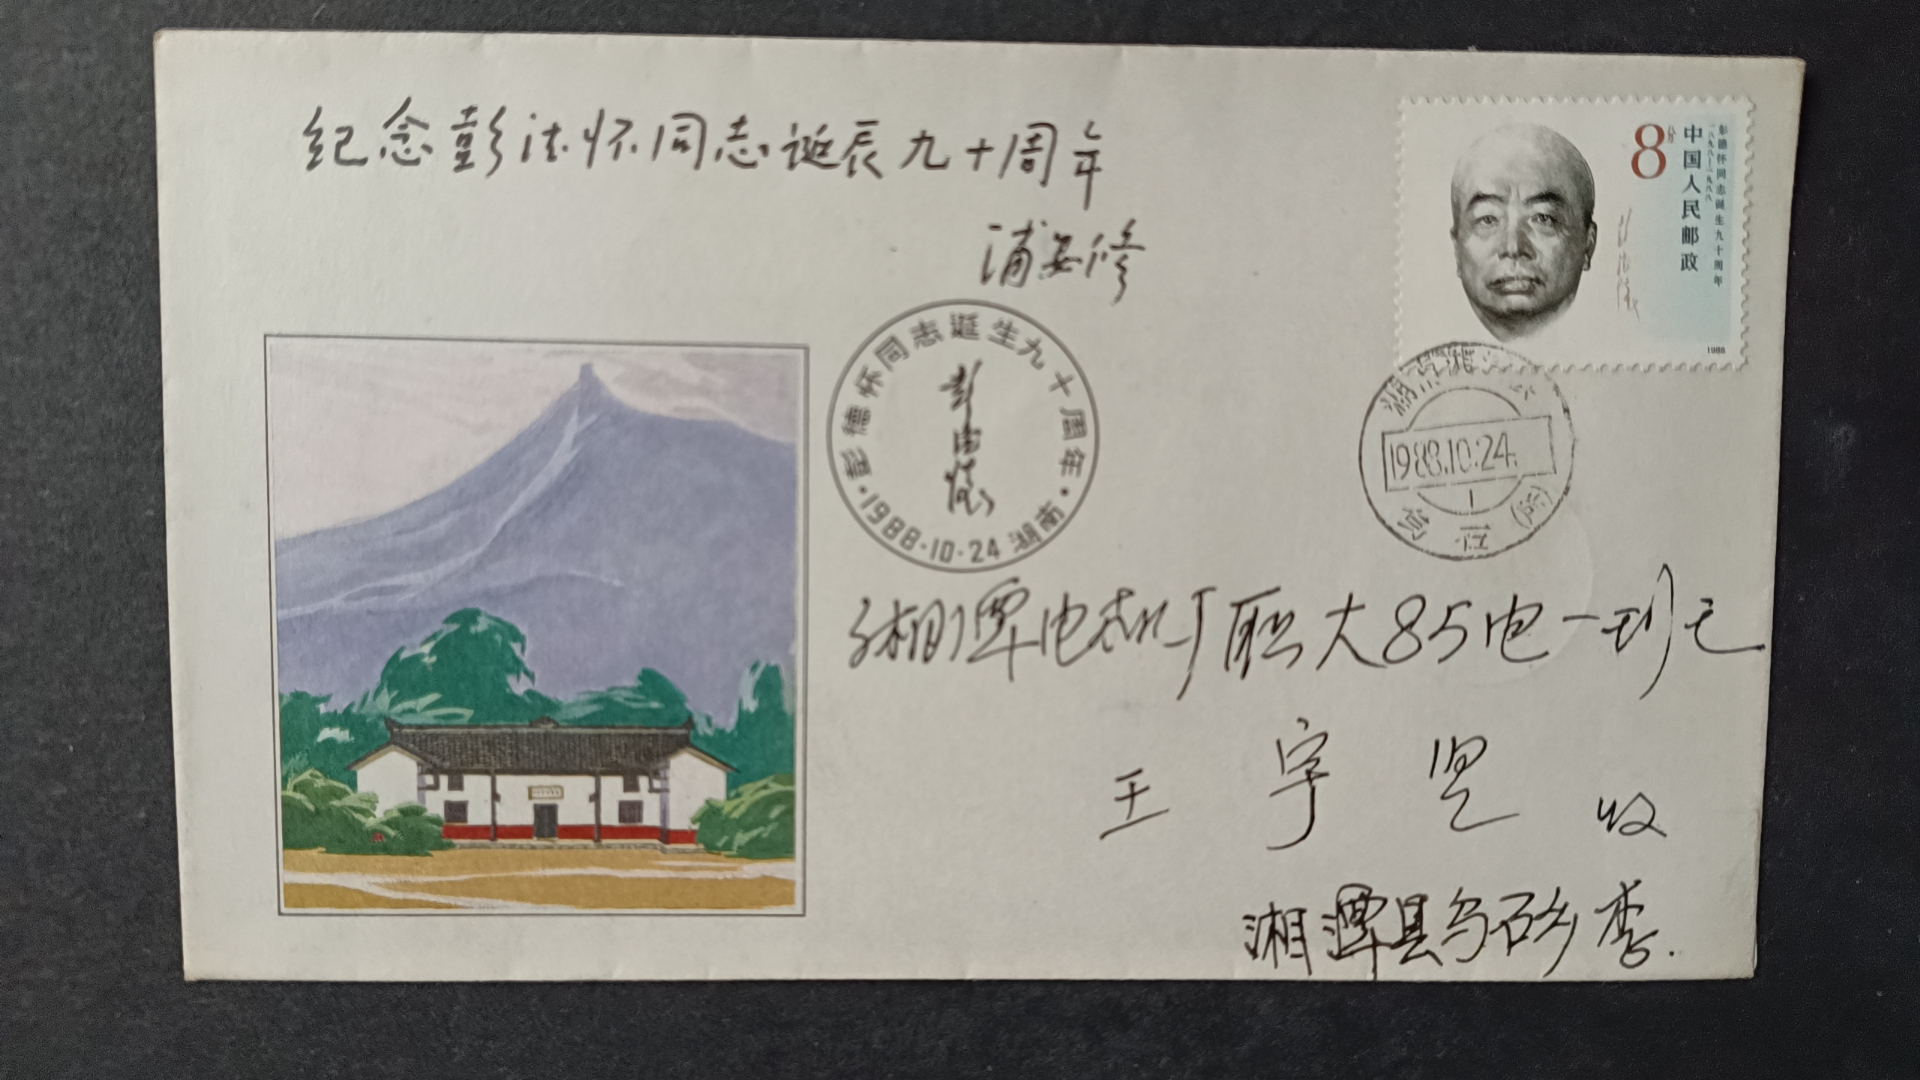 纪念彭德怀同志诞辰九十周年
浦安修
8分
中国人民邮政
彭德怀同志诞生九十周年
一八九八—一九八八
1988
彭德怀同志诞生九十周年
彭德怀
1988·10·24 湖南
1988.10.24.
湘潭电机厂职大85电一班
王宇
收
湘潭县乌石乡李.